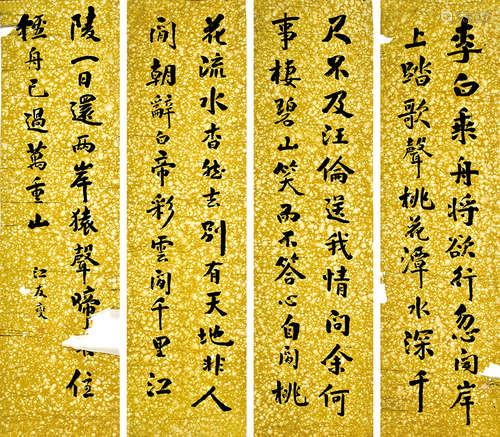 李白乘舟将欲行忽闻岸
上踏歌聲桃花潭水深千
尺不及汪倫送我情问余何
事棲碧山笑而不答心自闲桃
花流水杳然去别有天地非人
间朝辭白帝彩雲间千里江
陵一日還两岸猿聲啼住
舟已過萬重山
江友